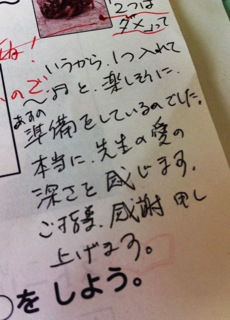 2つは
ダメって
いうから、1つ入れて
〜月と、楽しそうに、
あすの
準備をしているのでした。
本当に、先生の愛の
深さを感じます。
ご指導、感謝申し
上げます。
ね!
ので
○をしよう。